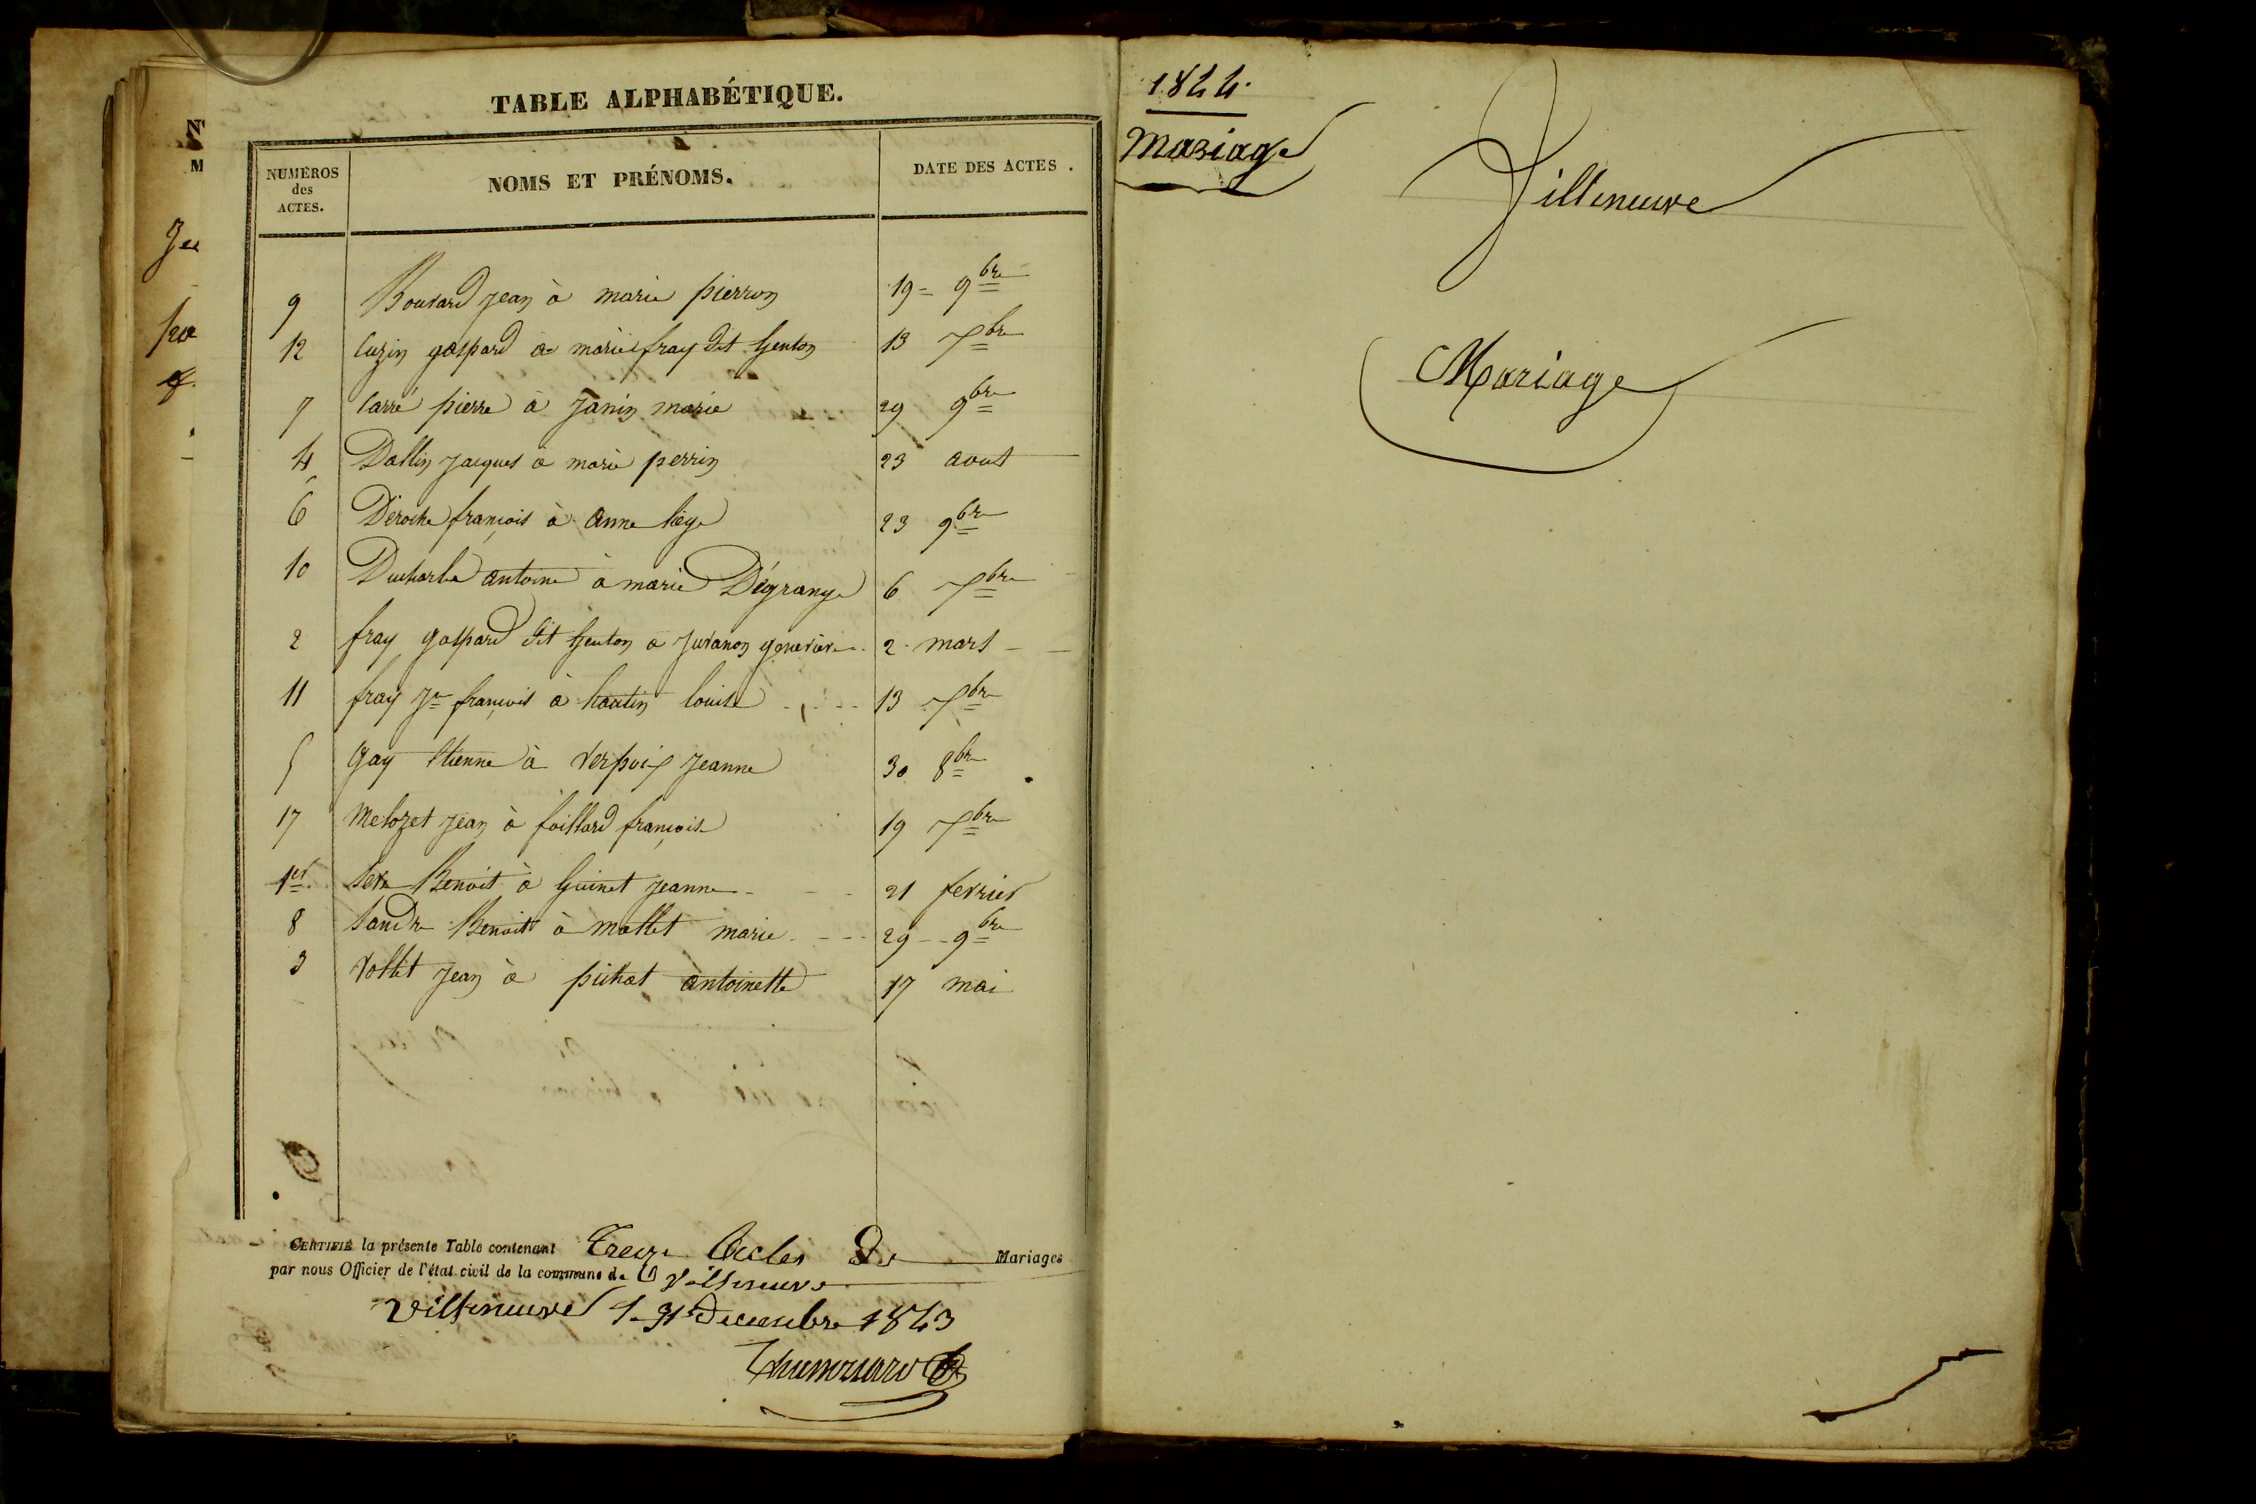 TABLE ALPHABÉTIQUE.
NUMÉROS des ACTES. NOMS ET PRÉNOMS. DATE DES ACTES.
9 Bouvard Jean à marie pierron 19 = 9bre
12 Cuzin gaspard à marie fray dit Genton 13 Xbre
7 Carré pierre à Janin marie 29 9bre
4 Dallin Jacques à marie perrin 23 aout
6 Déroche françois à anne 23 9bre
10 antoine à marie Dégrange 6 Xbre
2 fray gaspard dit Genton à Juvanon 2 mars
11 fray Jn françois à louise 13 Xbre
5 Gay Etienne à Verpoix Jeanne 30 8bre
17 Melozet Jean à foillard françoise 19 Xbre
1er Benoit à Guinet Jeanne 21 fevrier
8 Sandre Benoit à mollet marie 29 9bre
3 Vollet Jean à pichat antoinette 17 mai
CERTIFIÉ la présente Table contenant Treize Actes De Mariages
par nous Officier de l'état civil de la commune de Villeneuve
Villeneuve le 31 Decembre 1843
1844.
Mariage
Villeneuve
Mariage